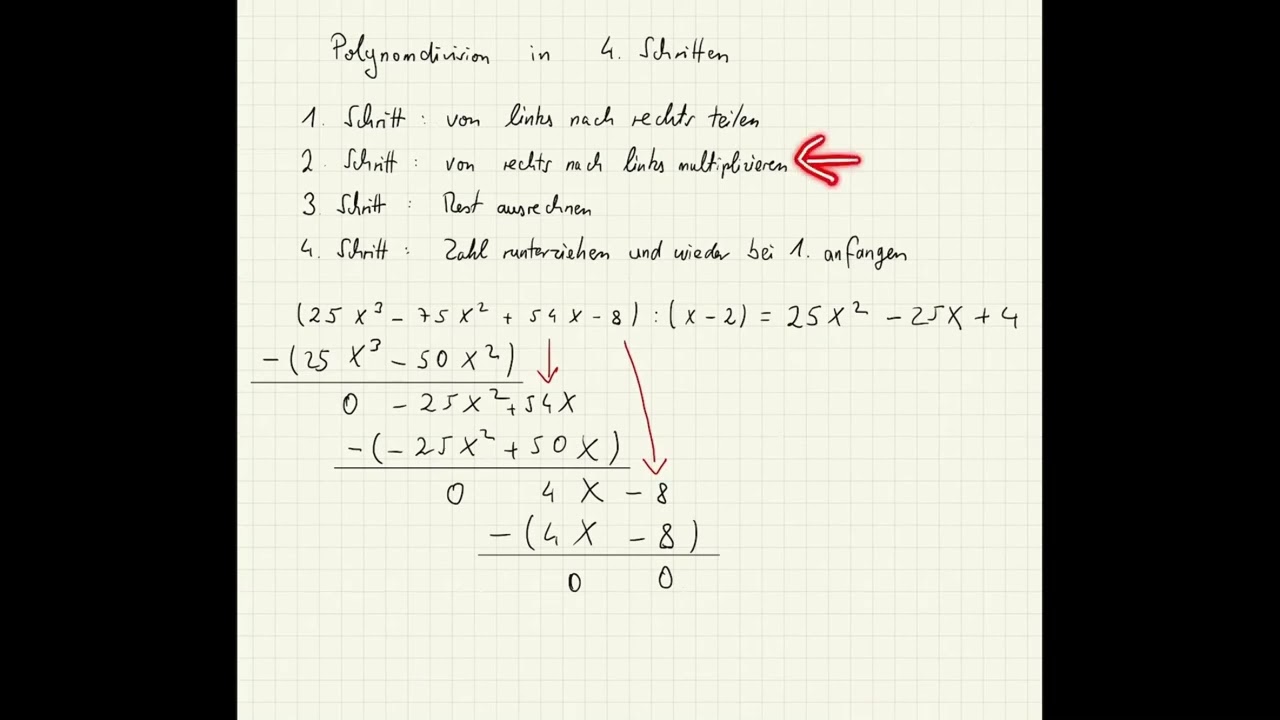 Polynomdivision in 4. Schritten
1. Schritt : von links nach rechts teilen
2 Schritt : von rechts nach links multiplizieren
3 Schritt : Rest ausrechnen
4. Schritt : Zahl runterziehen und wieder bei 1. anfangen
(25 x³ - 75 x² + 54 x - 8) : (x - 2) = 25 x² - 25 x + 4
- (25 x³ - 50 x²)
0 - 25 x² + 54 x
- (- 25 x² + 50 x)
0 4 x - 8
- (4 x - 8)
0 0